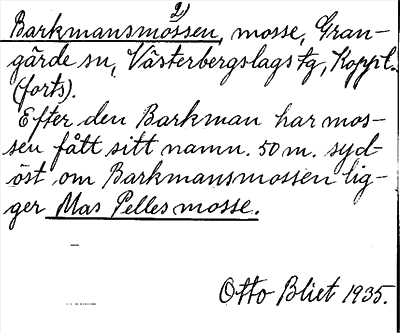 2)
Barkmansmossen, mosse, Gran-
gärde sn, Västerbergslags fg, Koppbl.
(forts).
Efter den Barkman har mos-
sen fått sitt namn. 50 m. syd-
öst om Barkmansmossen lig-
ger Mas Pelles mosse.
Otto Blixt 1935.